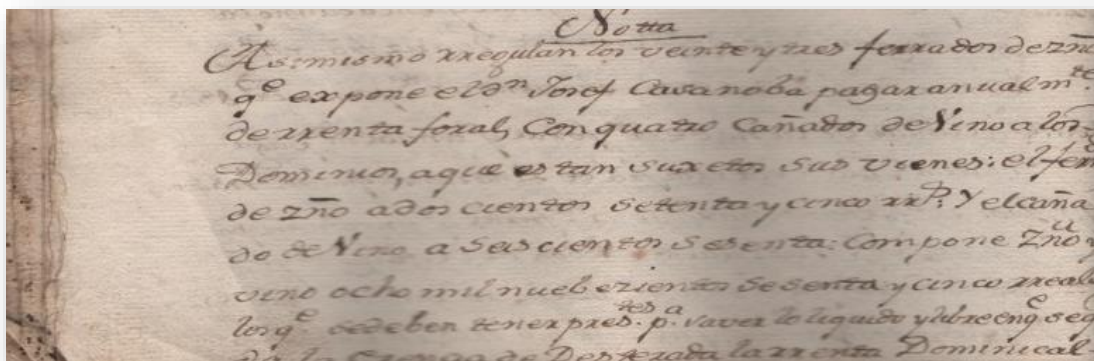 Notta
Asimismo rregulan los veinte y tres ferrados de zño
q.e expone el dn Josef Casanoba pagar anualm.te
de rrenta foral, Con quatro Cañados de Vino a los
Dominios, a que estan suxetos sus vienes: el ferr
de zño a dos cientos setenta y cinco rr.s: Y el caña
do de Vino a seis cientos sesenta: Compone Zño y
vino ocho mil nuebezientos sesenta y cinco rreal
los q.e se deben tener pres.tes p.a saver lo liquido y libre en q.e seq
da la de Desterada la rrenta Dominical